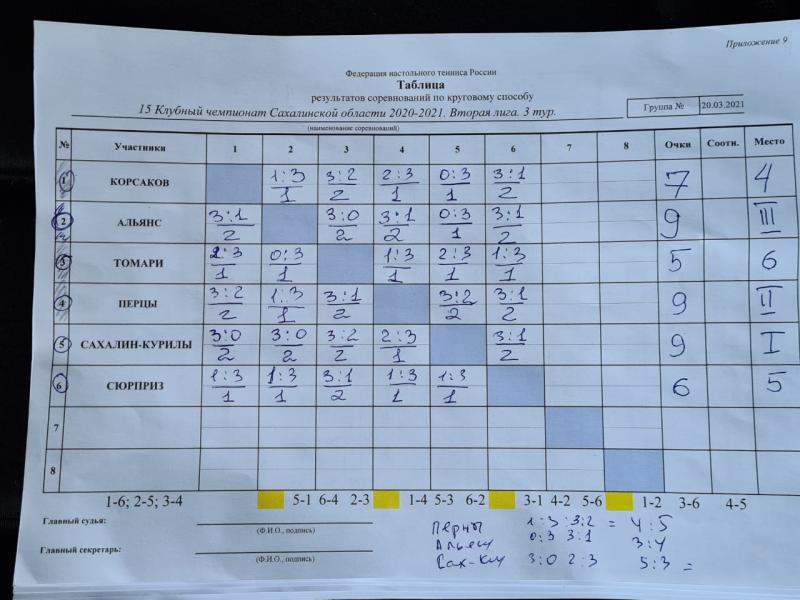 Приложение 9
Федерация настольного тенниса России
Таблица
результатов соревнований по круговому способу
15 Клубный чемпионат Сахалинской области 2020-2021. Вторая лига. 3 тур. Группа № 20.03.2021
(наименование соревнований)
№ Участники 1 2 3 4 5 6 7 8 Очки Соотн. Место
1 КОРСАКОВ 1:3 3:2 2:3 0:3 3:1 7 4
1 2 1 1 2
2 АЛЬЯНС 3:1 3:0 3:1 0:3 3:1 9 III
2 2 2 1 2
3 ТОМАРИ 2:3 0:3 1:3 2:3 1:3 5 6
1 1 1 1 1
4 ПЕРЦЫ 3:2 1:3 3:1 3:2 3:1 9 II
2 1 2 2 2
5 САХАЛИН-КУРИЛЫ 3:0 3:0 3:2 2:3 3:1 9 I
2 2 2 1 2
6 СЮРПРИЗ 1:3 1:3 3:1 1:3 1:3 6 5
1 1 2 1 1
7
8
1-6; 2-5; 3-4 5-1 6-4 2-3 1-4 5-3 6-2 3-1 4-2 5-6 1-2 3-6 4-5
Главный судья:
(Ф.И.О., подпись)
Главный секретарь:
(Ф.И.О., подпись)
Перцы 1:3 3:2 = 4:5
Альянс 0:3 3:1 3:4
Сах-Кур 3:0 2:3 5:3 =